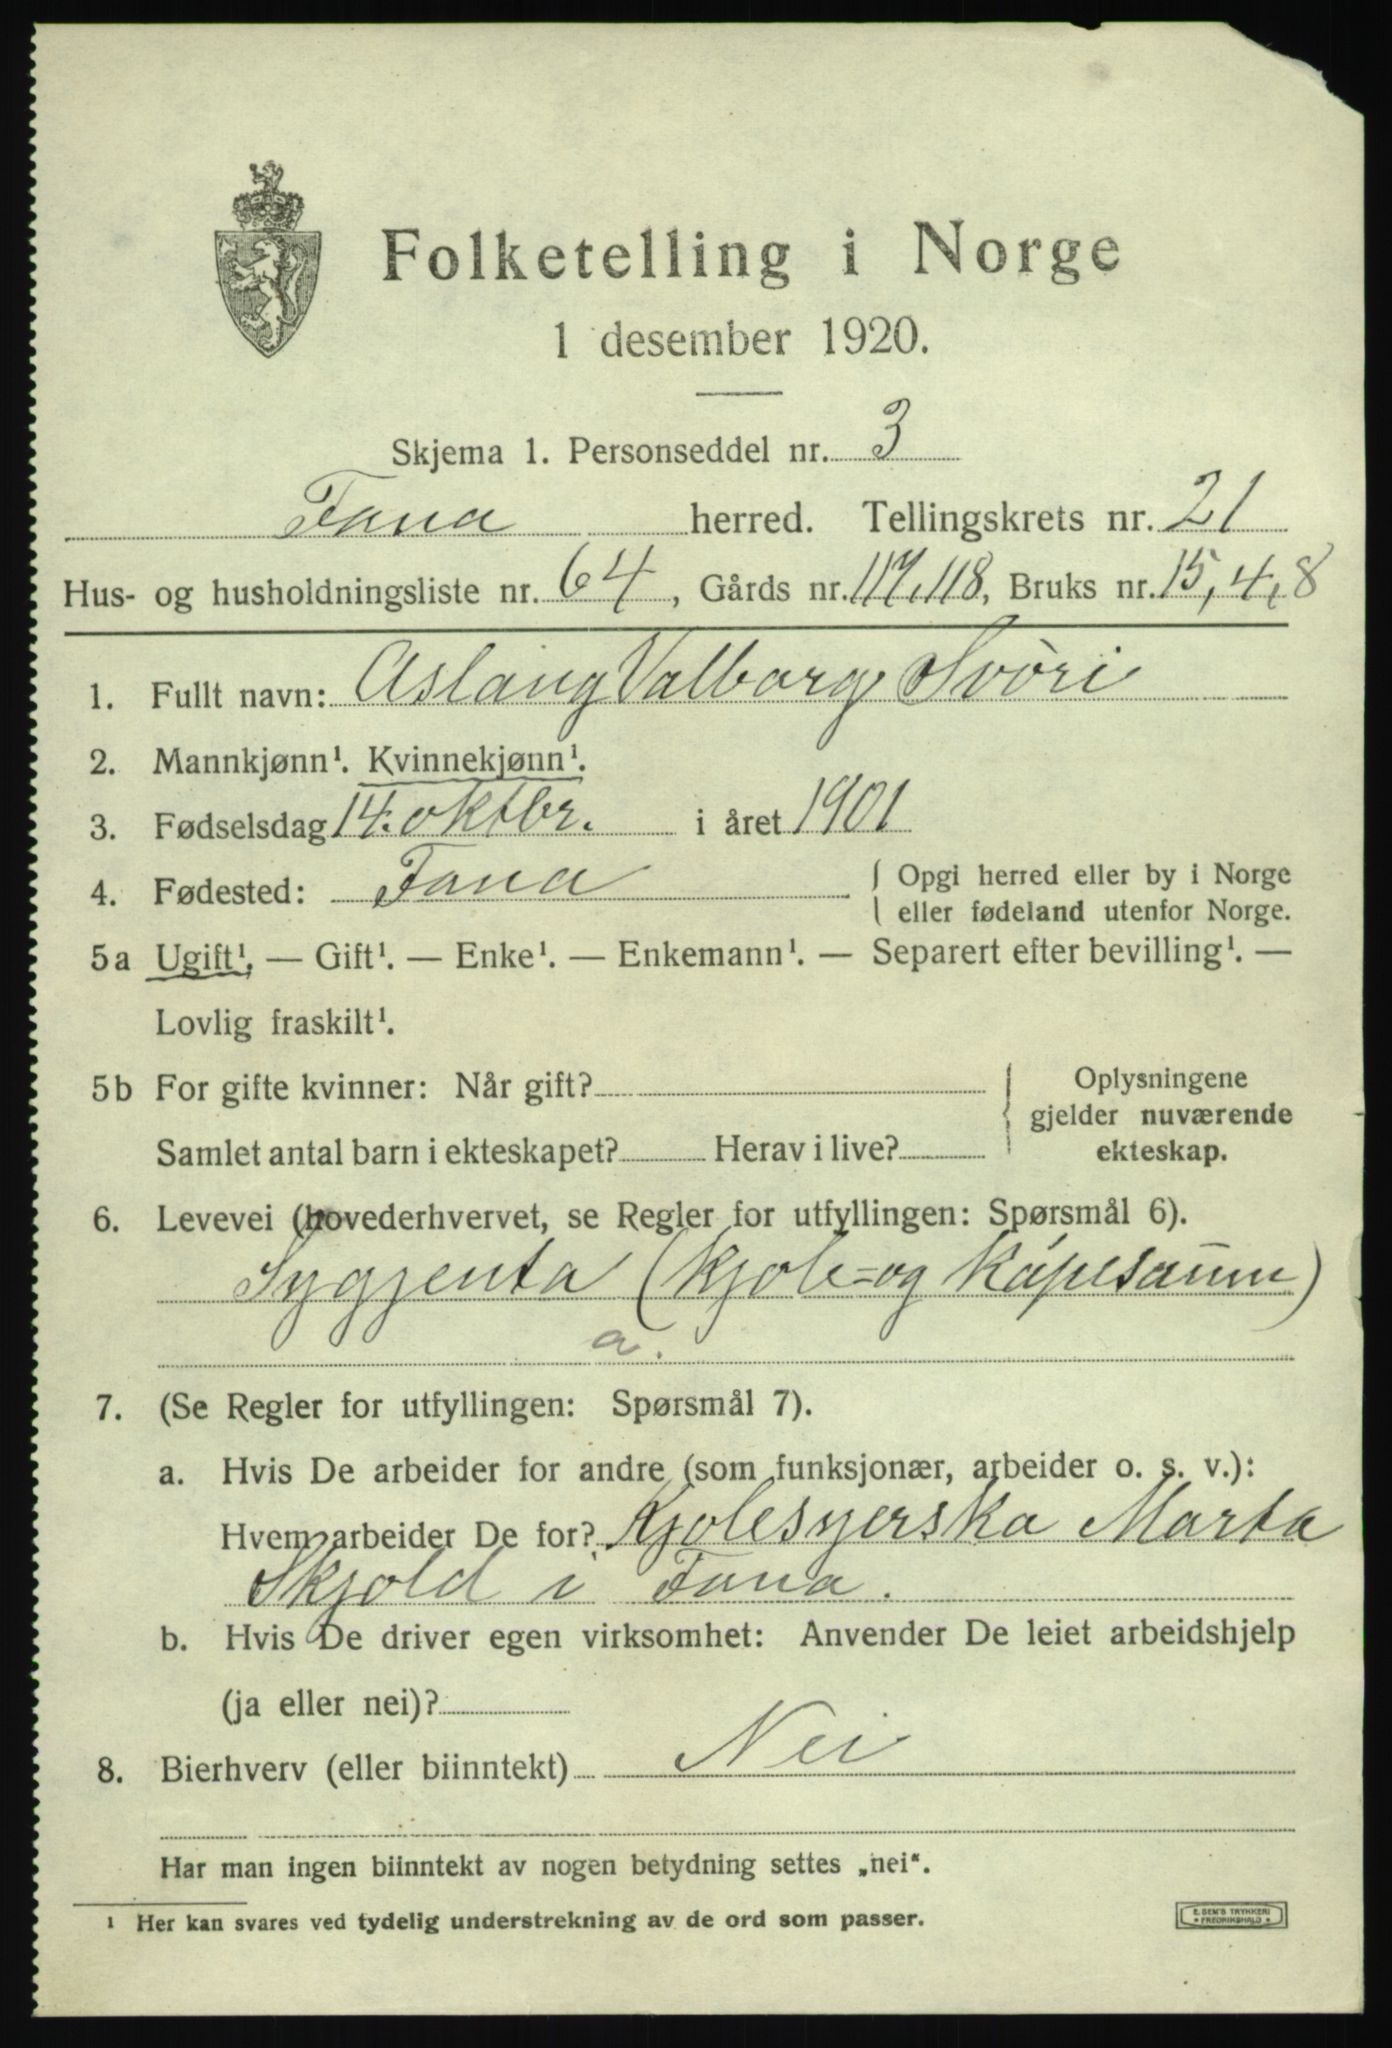 Folketelling i Norge
1 desember 1920.
Skjema 1. Personseddel nr. 3
Fana herred. Tellingskrets nr. 21
Hus- og husholdningsliste nr. 64, Gårds nr. 117,118, Bruks nr. 15,4,8
1. Fullt navn: Aslaug Valborg Svöri
2. Mannkjønn¹. Kvinnekjønn¹.
3. Fødselsdag 14. oktbr. i året 1901
4. Fødested: Fana { Opgi herred eller by i Norge
eller fødeland utenfor Norge.
5a Ugift¹. — Gift¹. — Enke¹. — Enkemann¹. — Separert efter bevilling¹. —
Lovlig fraskilt¹.
5b For gifte kvinner: Når gift? { Oplysningene
gjelder nuværende
Samlet antal barn i ekteskapet? Herav i live? ekteskap.
6. Levevei (hovederhvervet, se Regler for utfyllingen: Spørsmål 6).
Syggjenta (kjole- og kåpesaum)
a.
7. (Se Regler for utfyllingen: Spørsmål 7).
a. Hvis De arbeider for andre (som funksjonær, arbeider o. s. v.):
Hvem arbeider De for? Kjolesyerska Marta
Skjold i Fana.
b. Hvis De driver egen virksomhet: Anvender De leiet arbeidshjelp
(ja eller nei)?
8. Bierhverv (eller biinntekt) Nei
Har man ingen biinntekt av nogen betydning settes „nei“.
¹ Her kan svares ved tydelig understrekning av de ord som passer.
E. SEM'S TRYKKERI
* FREDRIKSHALD *